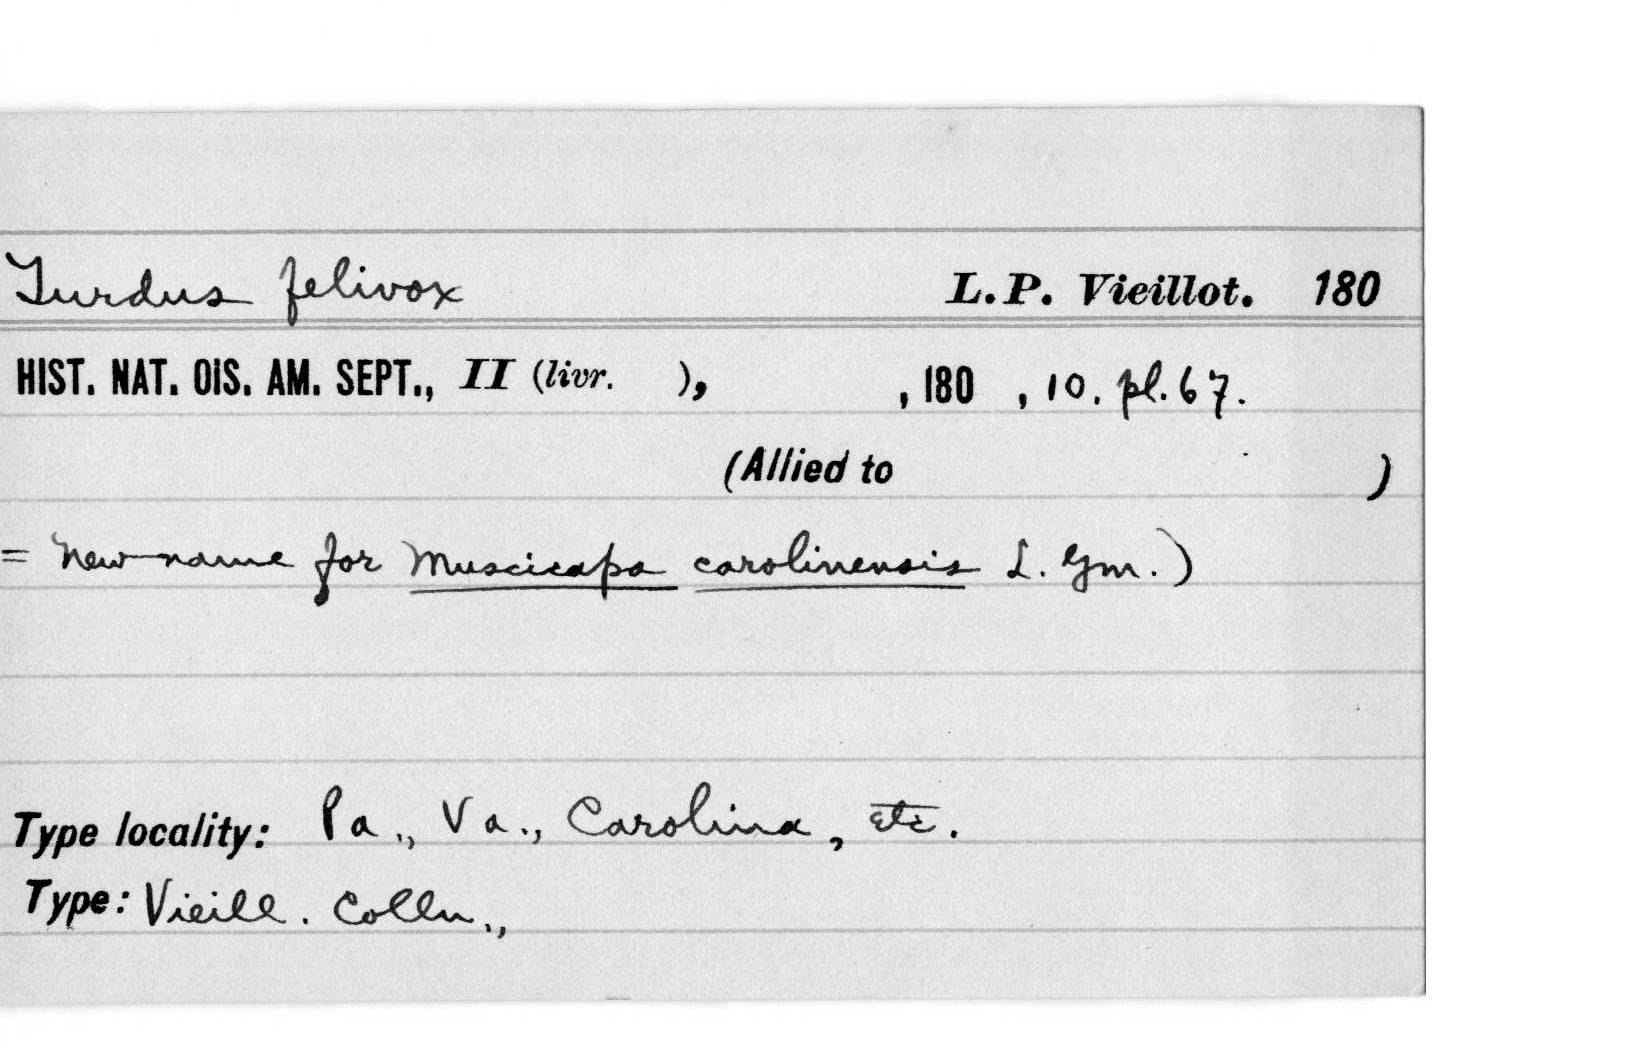 Turdus felivox L. P. Vieillot. 180
HIST. NAT. OIS. AM. SEPT., II (livr. ), , 180 , 10. pl. 67.
(Allied to )
= New name for Muscicapa carolinensis L. Gm.)
Type locality: Pa., Va., Carolina, etc.
Type: Vieill. Colln.,